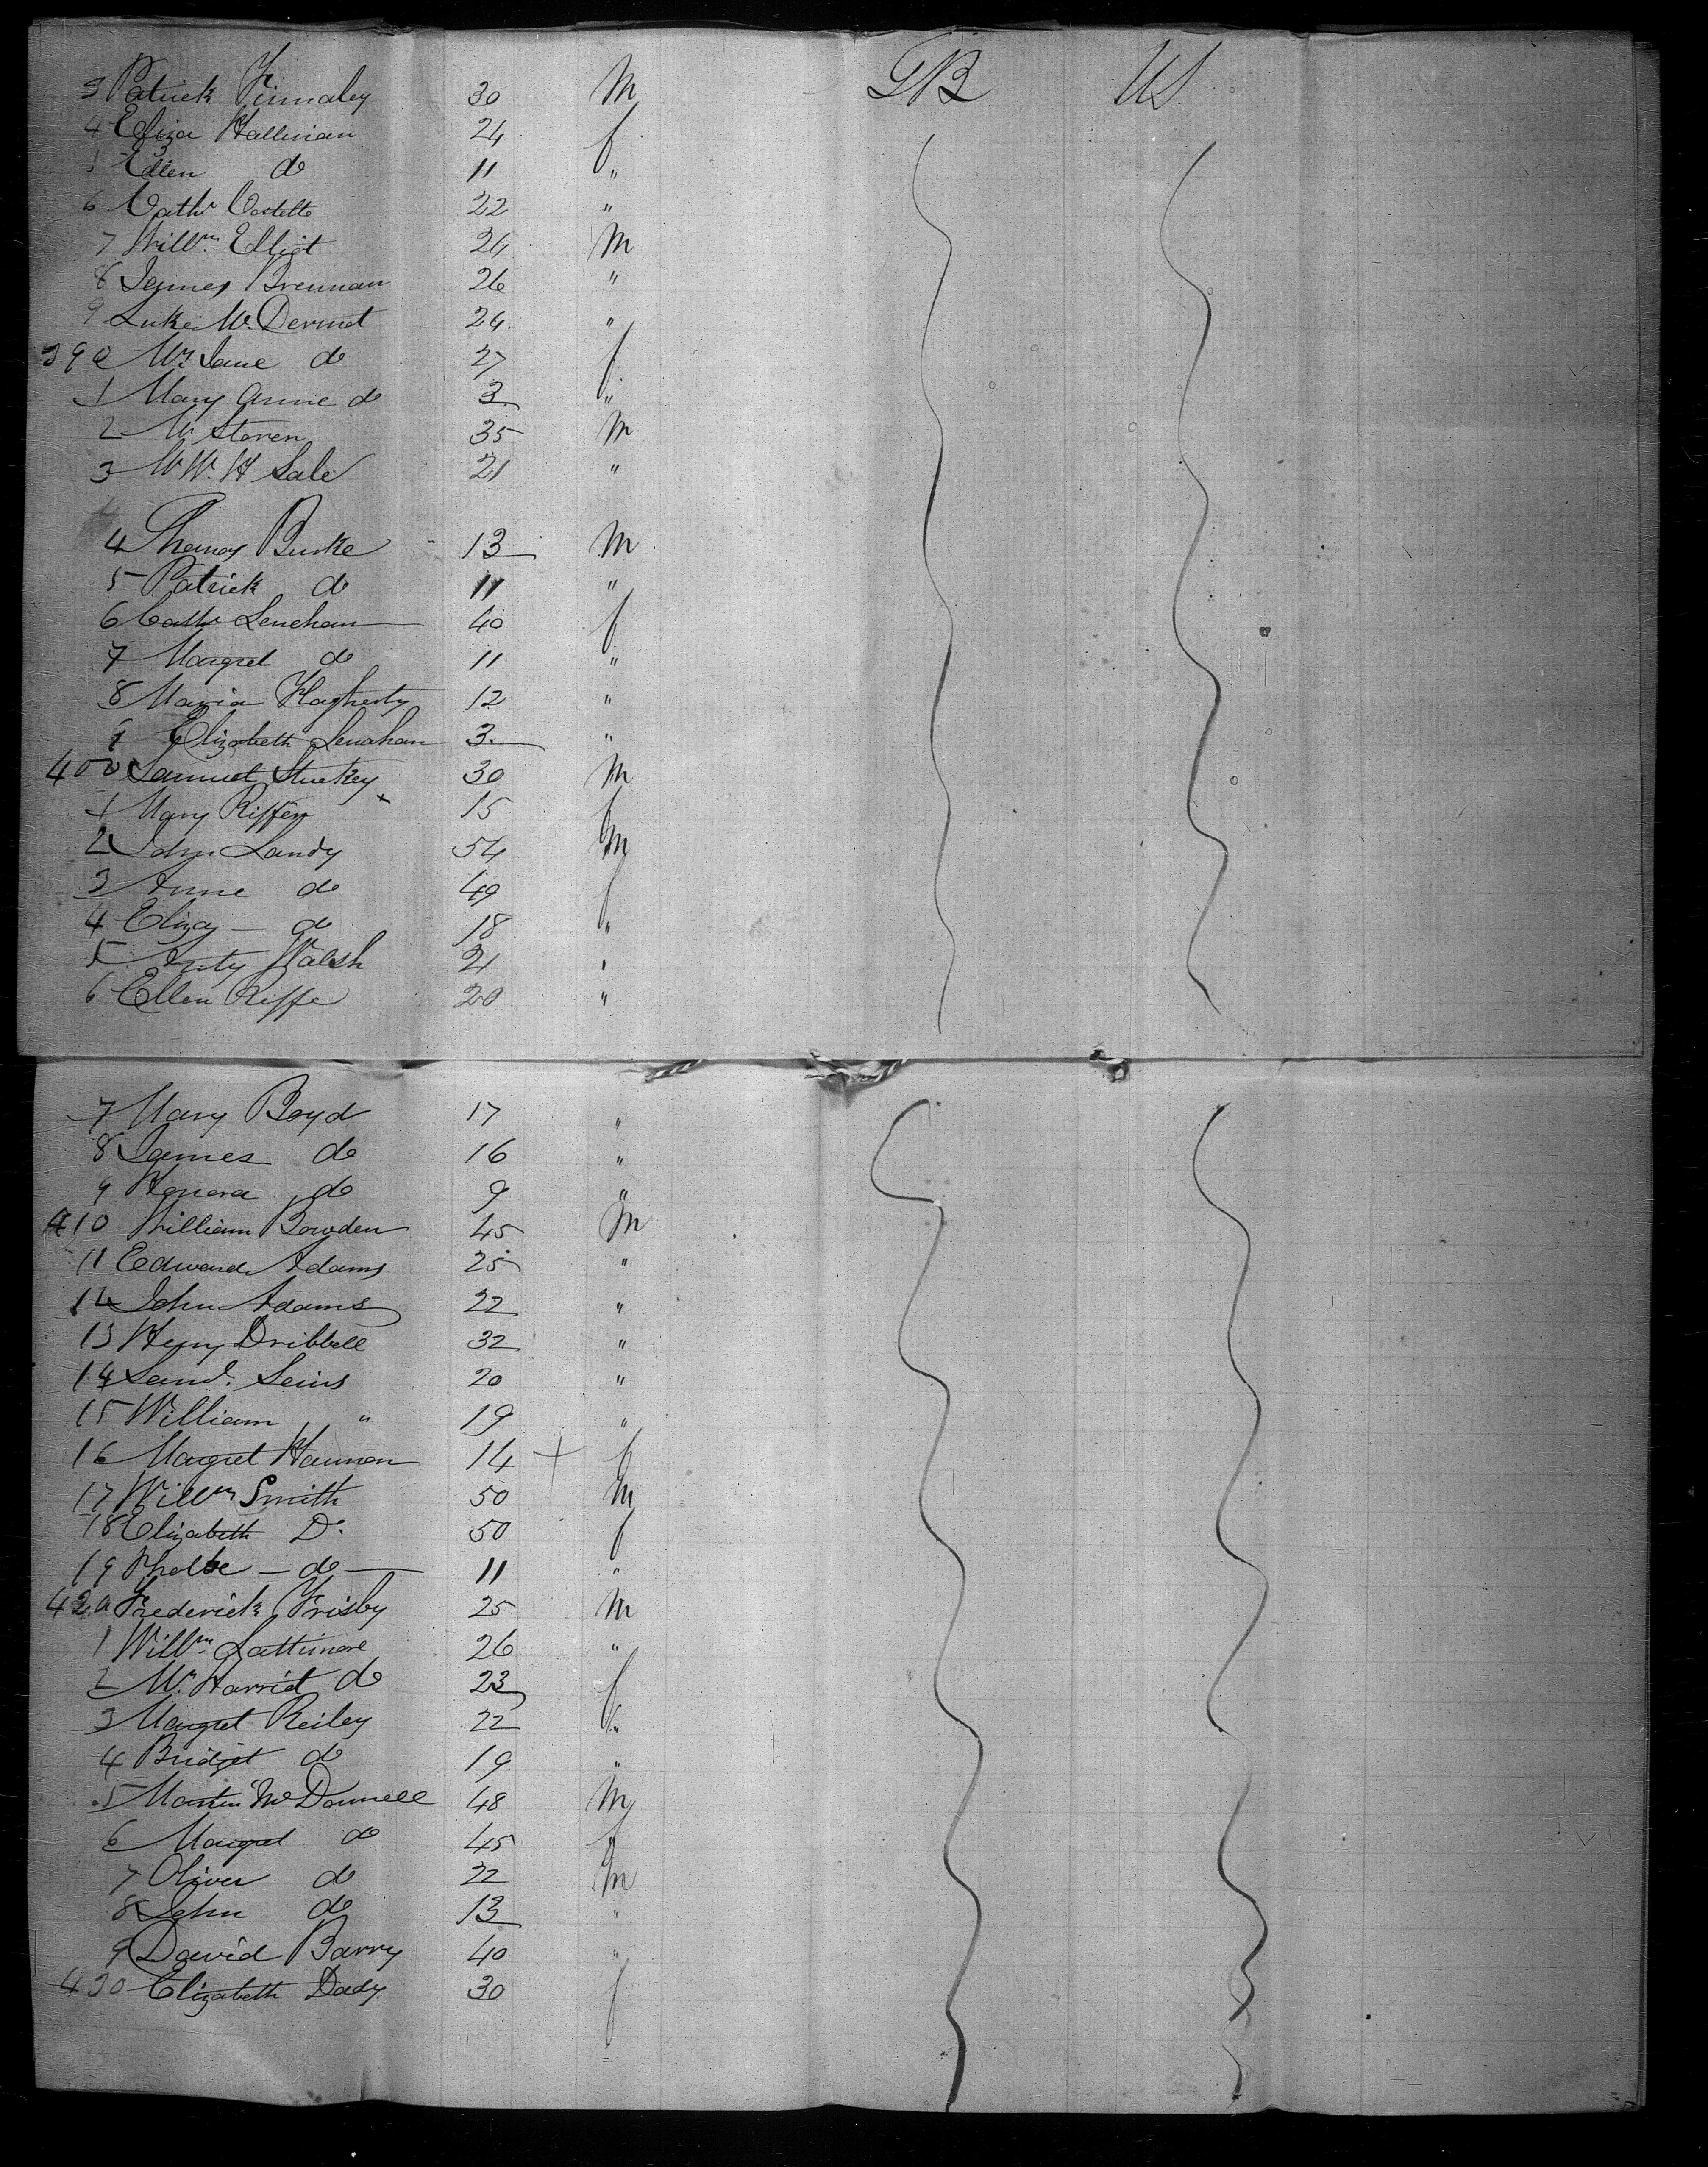 3 Patrick Finnaley 30 M GB US
4 Eliza Hallinan 24 f
5 Ellen do 11 "
6 Cathr Costello 22 "
7 Willm Elliot 24 M
8 James Brennan 26 "
9 Luke McDermot 24 "
390 Mrs Jane do 27 f
1 Mary Anne do 3 "
2 Mr Storen 35 M
3 Mr W. H Sale 21 "
4 Thomas Burke 13 M
5 Patrick do 11 "
6 Cathr Lenehan 40 f
7 Margret do 11 "
8 Maria Flagherty 12 "
9 Elizabeth Lenahan 3 "
400 Samuel Stuckey 30 M
1 Mary Riffey 15 f
2 John Landy 54 M
3 Anne do 49 f
4 Eliza - do 18 "
5 Anty Walsh 21 "
6 Ellen Riffe 20 "
7 Mary Boyd 17 "
8 James do 16 "
9 Honora do 9 "
410 William Bowden 45 M
11 Edward Adams 25 "
12 John Adams 22 "
13 Heny Dribbell 32 "
14 Saml. Seins 20 "
15 William " 19 "
16 Margret Hannon 14 + f
17 Willm Smith 50 M
18 Elizabeth Do. 50 f
19 Phobe - do - 11 "
420 Frederick Frisby 25 M
1 Willm Lattimore 26 "
2 Mrs Harriet do 23 f
3 Margret Reiley 22 "
4 Bridget do 19 "
5 Martin McDonnell 48 M
6 Margret do 45 f
7 Oliver do 22 M
8 John do 13 "
9 David Barry 40 "
430 Elizabeth Dady 30 f